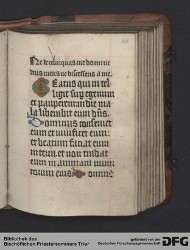 Ne derelinquas me domine
deus meus ne discesseris a me.
Beatus qui in tel
ligit sup egenum
et pauperem in die ma
la liberabit eum dñs.
Dominus conservet
eum et vivificet eum et
beatum faciat eum
in terra et non tradat
eum in animam inimi
corum eius. Domin
Bibliothek des
Bischöflichen Priesterseminars Trier
gefördert von der
Deutschen Forschungsgemeinschaft
DFG